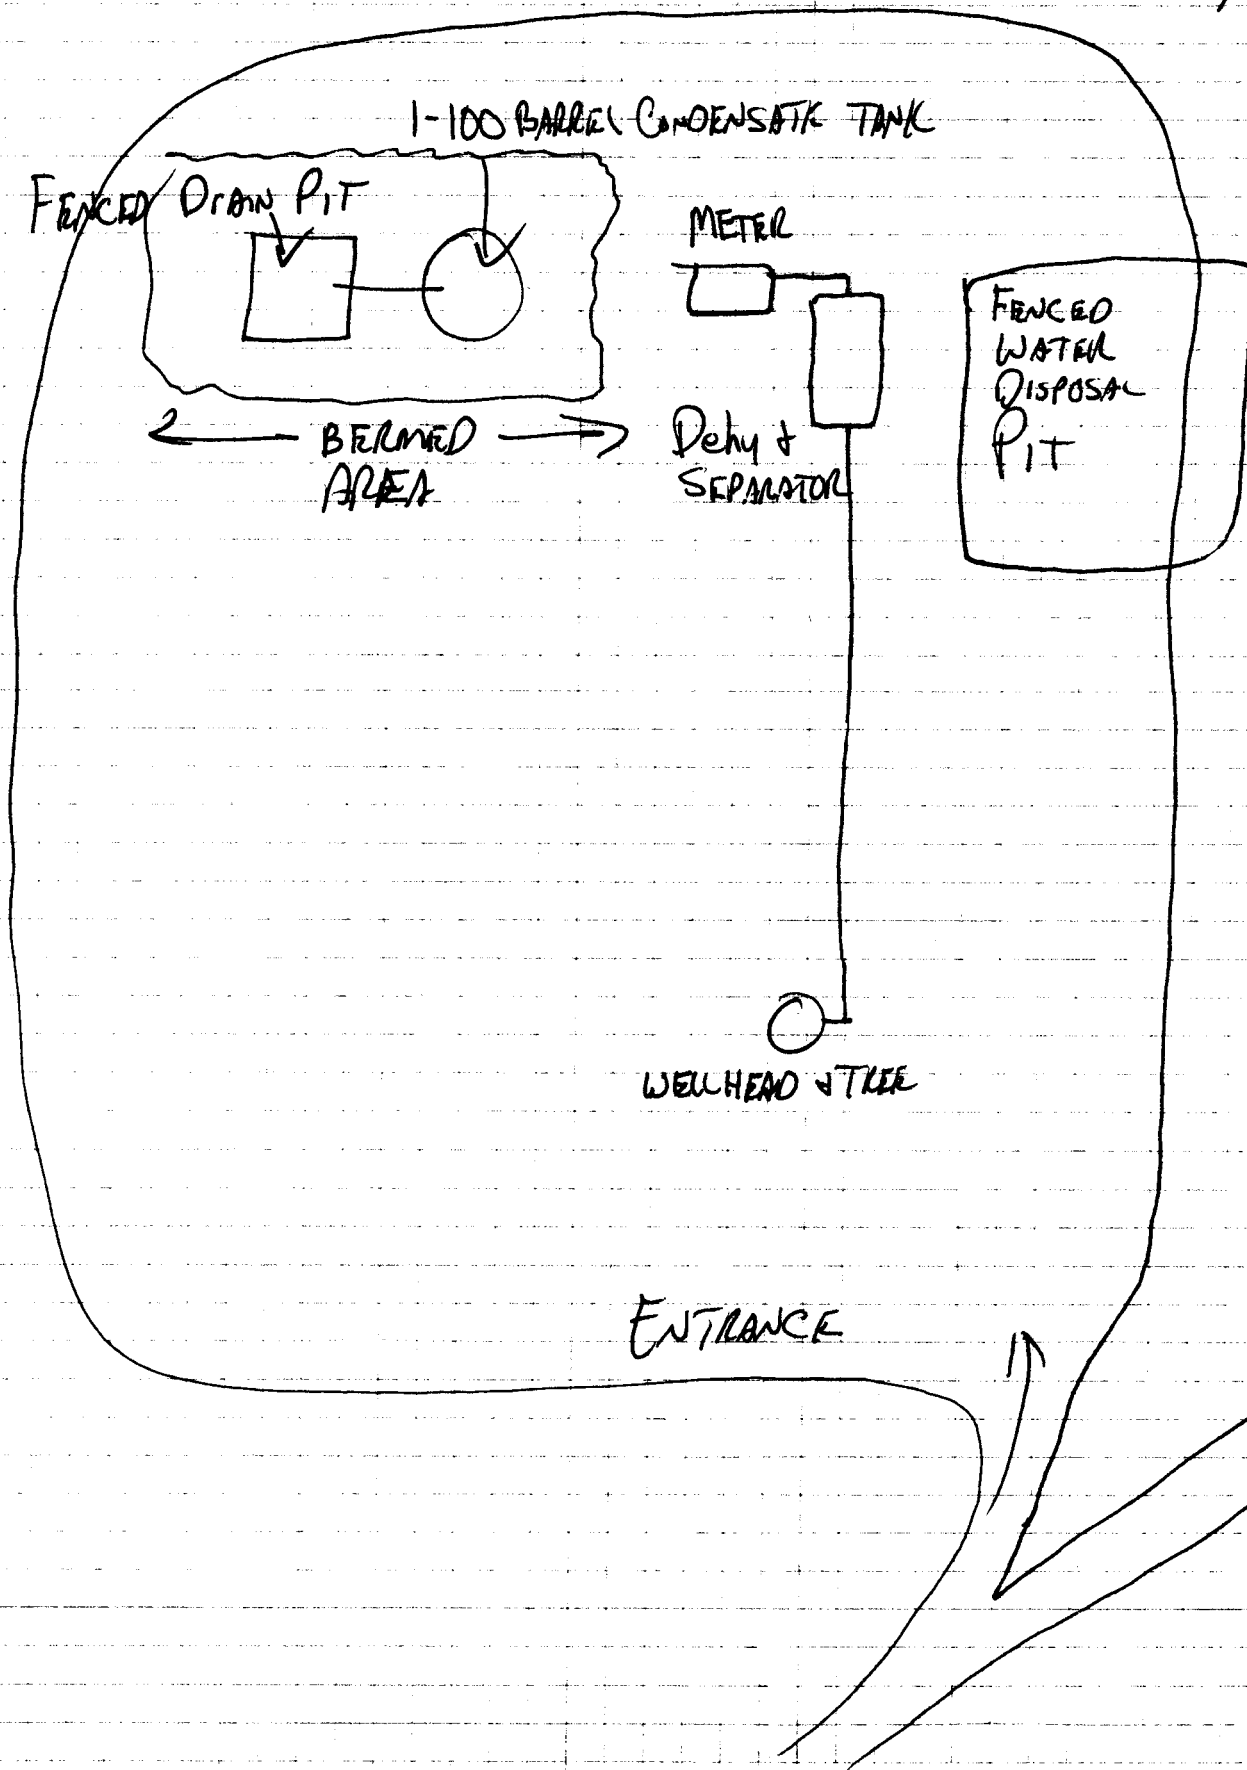 1-100 BARREL CONDENSATE TANK
FENCED DRAIN PIT
METER
FENCED
WATER
DISPOSAL
PIT
BERMED
AREA
Dehy &
SEPARATOR
WELLHEAD & TREE
ENTRANCE